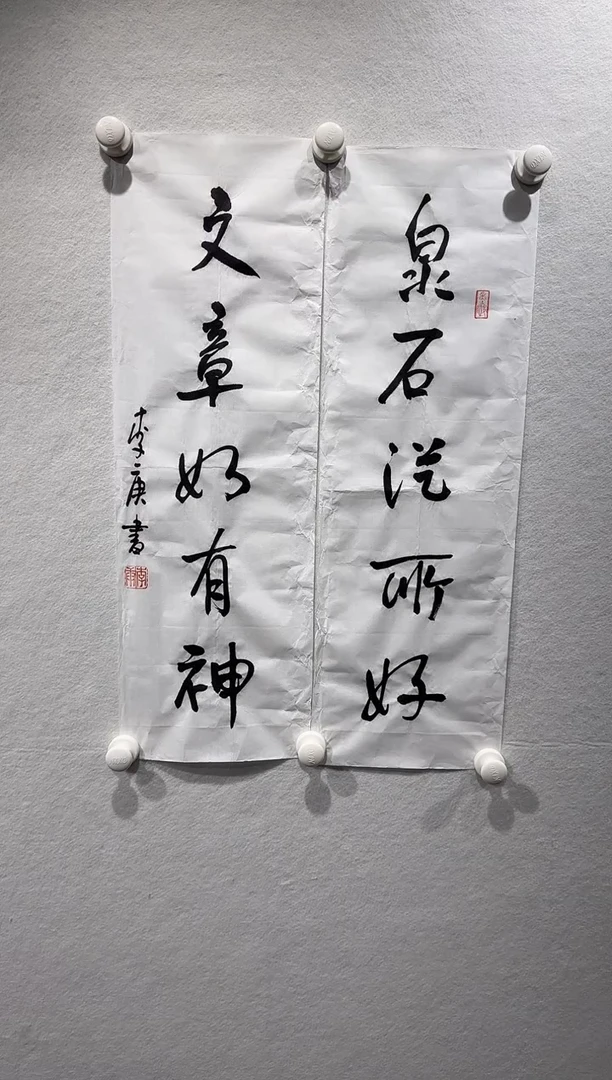 泉石從所好
文章如有神
李庚書